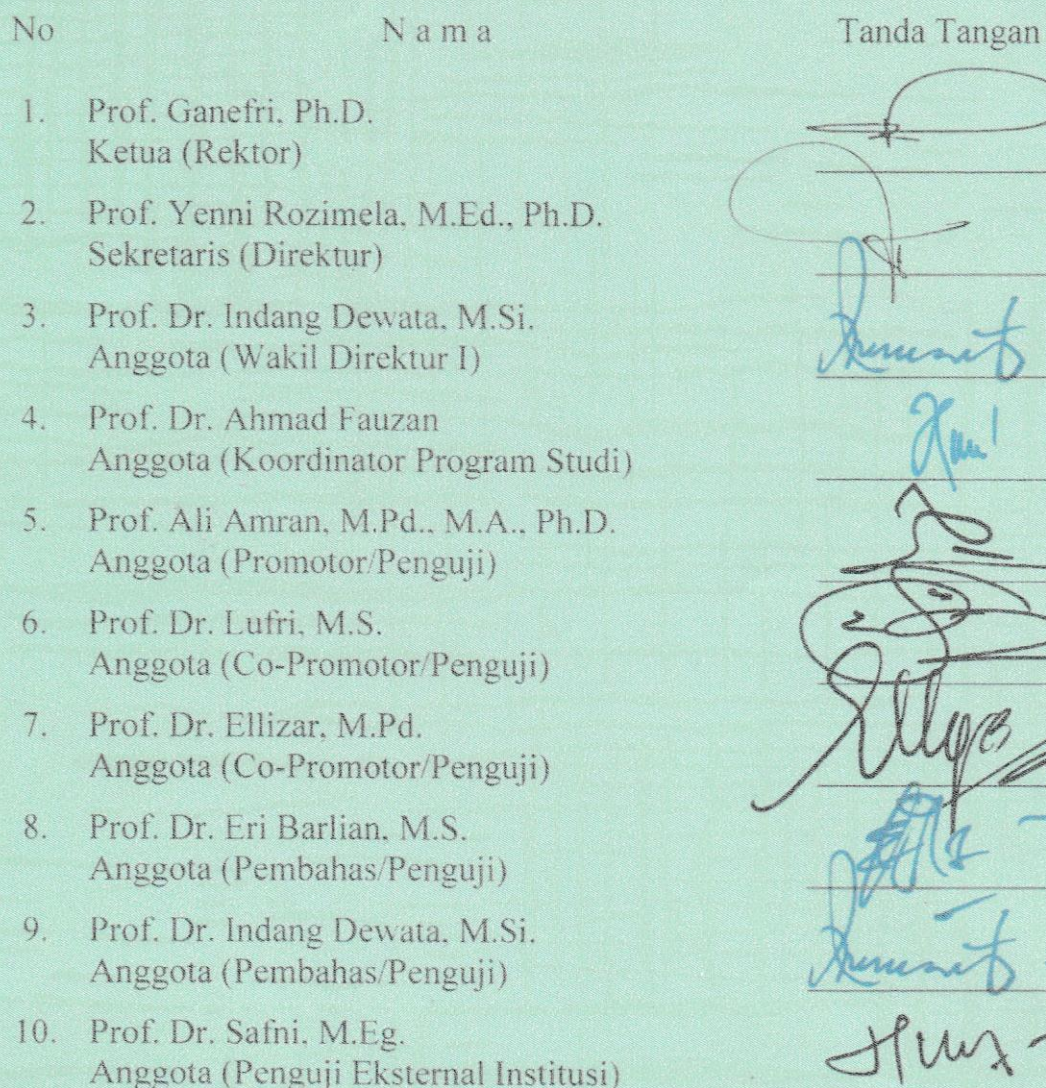 No N a m a Tanda Tangan
1. Prof. Ganefri, Ph.D.
Ketua (Rektor)
2. Prof. Yenni Rozimela, M.Ed., Ph.D.
Sekretaris (Direktur)
3. Prof. Dr. Indang Dewata, M.Si.
Anggota (Wakil Direktur I)
4. Prof. Dr. Ahmad Fauzan
Anggota (Koordinator Program Studi)
5. Prof. Ali Amran, M.Pd., M.A., Ph.D.
Anggota (Promotor/Penguji)
6. Prof. Dr. Lufri, M.S.
Anggota (Co-Promotor/Penguji)
7. Prof. Dr. Ellizar, M.Pd.
Anggota (Co-Promotor/Penguji)
8. Prof. Dr. Eri Barlian, M.S.
Anggota (Pembahas/Penguji)
9. Prof. Dr. Indang Dewata, M.Si.
Anggota (Pembahas/Penguji)
10. Prof. Dr. Safni, M.Eg.
Anggota (Penguji Eksternal Institusi)